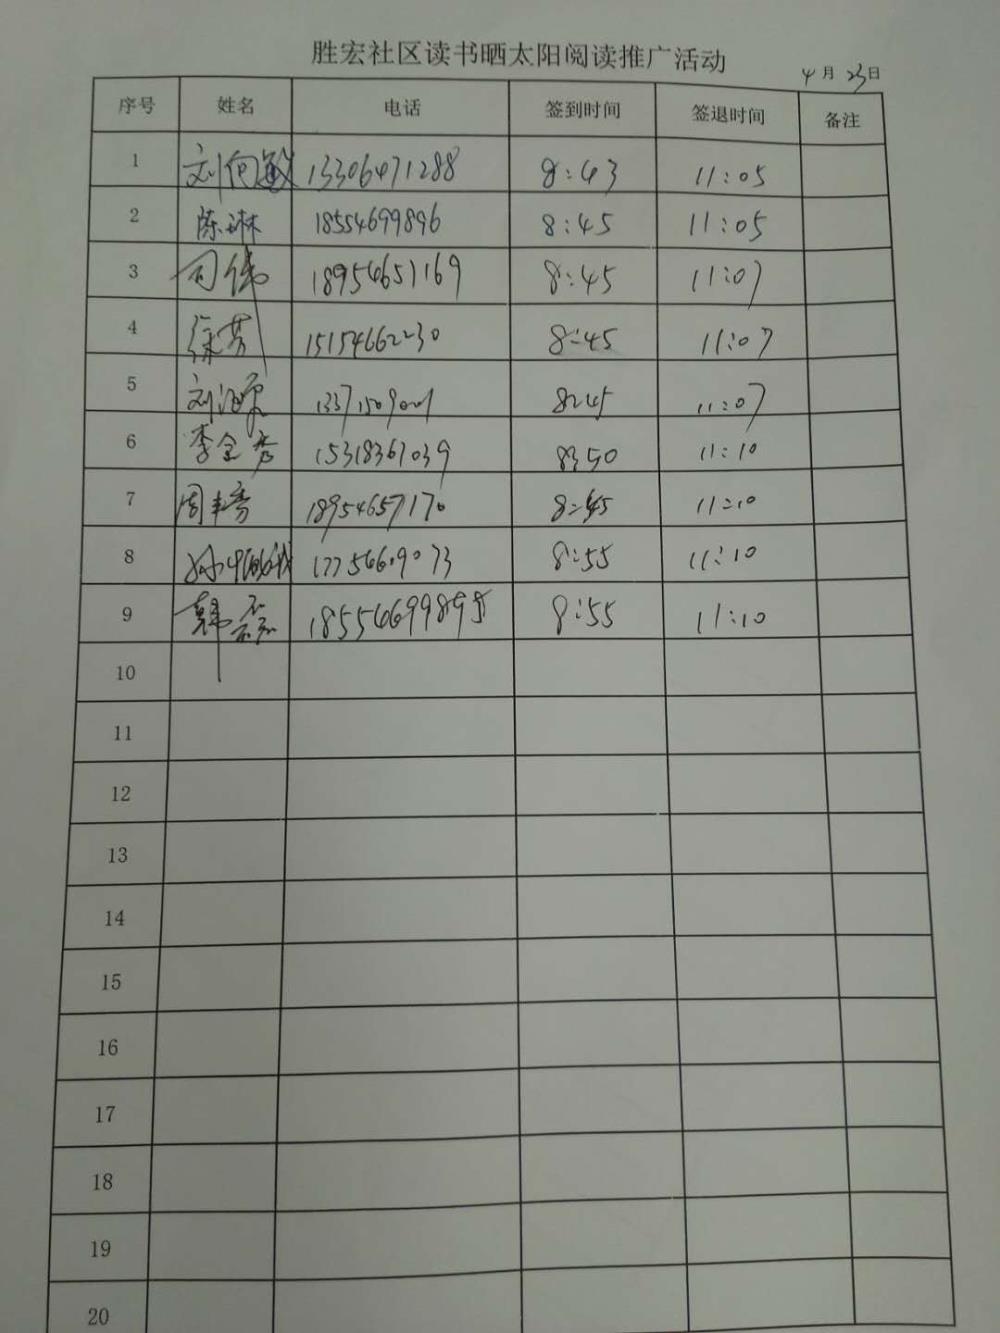 胜宏社区读书晒太阳阅读推广活动
4月23日
序号 姓名 电话 签到时间 签退时间 备注
1 刘向敏 13306471288 8:43 11:05
2 陈琳 18554699896 8:45 11:05
3 司伟 18954657169 8:45 11:07
4 徐芳 15154662230 8:45 11:07
5 8:45 11:07
6 李金秀 15318361039 8:50 11:10
7 18954657170 8:45 11:10
8 8:55 11:10
9 韩磊 18554699895 8:55 11:10
10
11
12
13
14
15
16
17
18
19
20